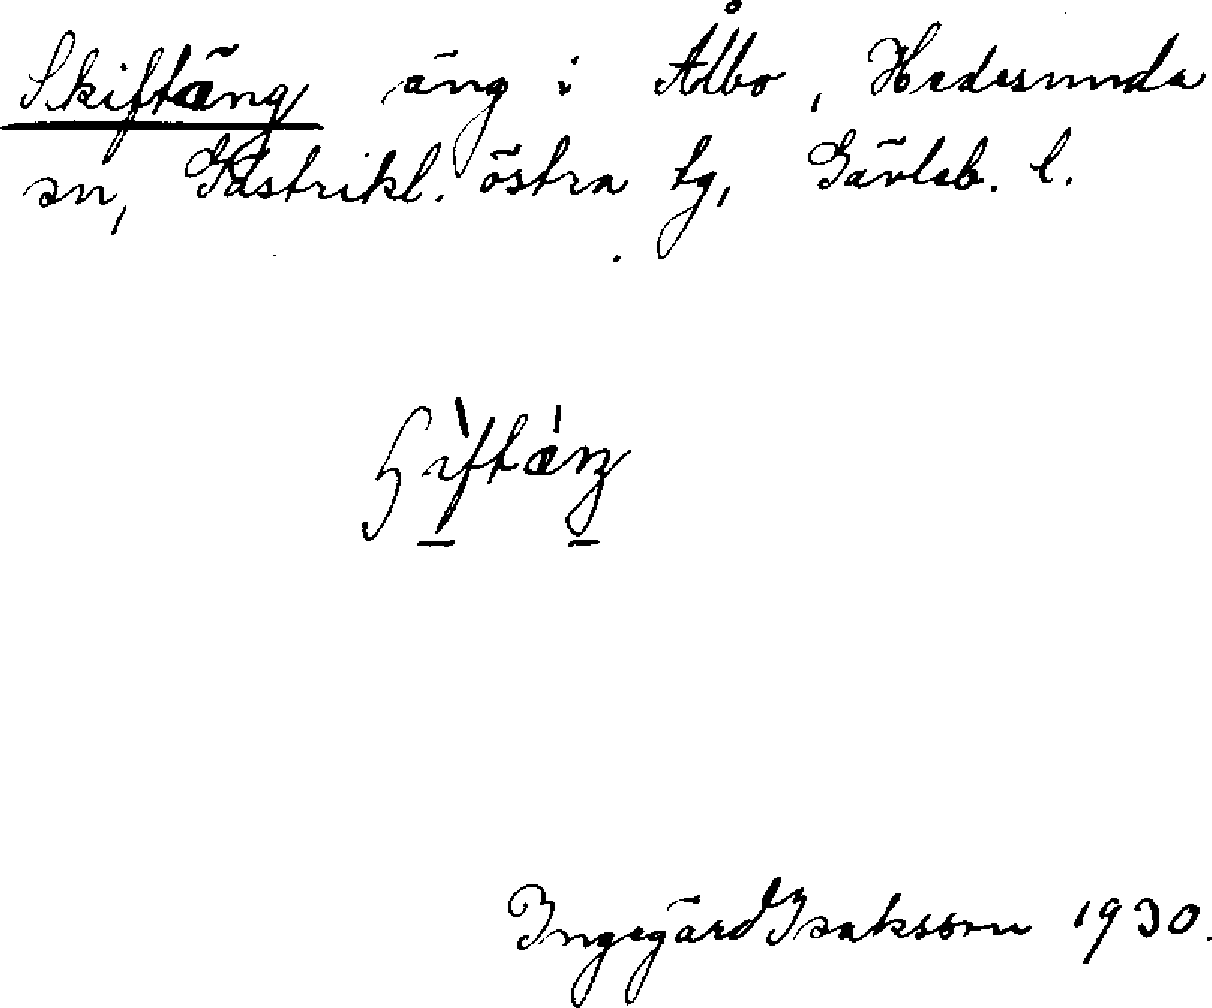 Skiftäng äng i Ålbo, Hedesunda
sn, Gästrikl. östra tg, Gävleb. l.
Ingegärd Isaksson 1930.